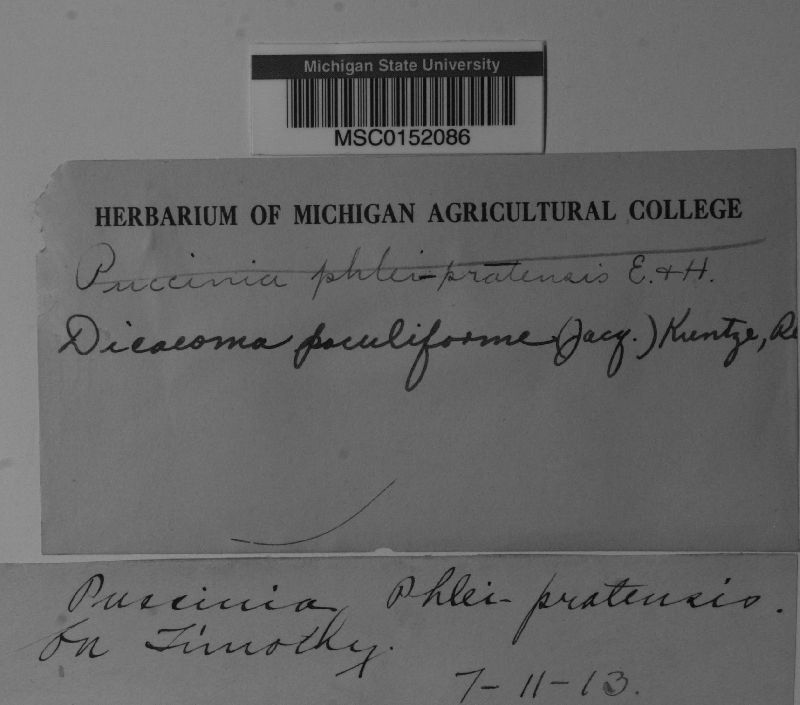 Michigan State University
MSC0152086
HERBARIUM OF MICHIGAN AGRICULTURAL COLLEGE
Puccinia phlei-pratensis E. + H.
Dicaeoma poculiforme (Jacq.) Kuntze,
Puccinia Phlei-pratensis.
On Timothy.
7-11-13.